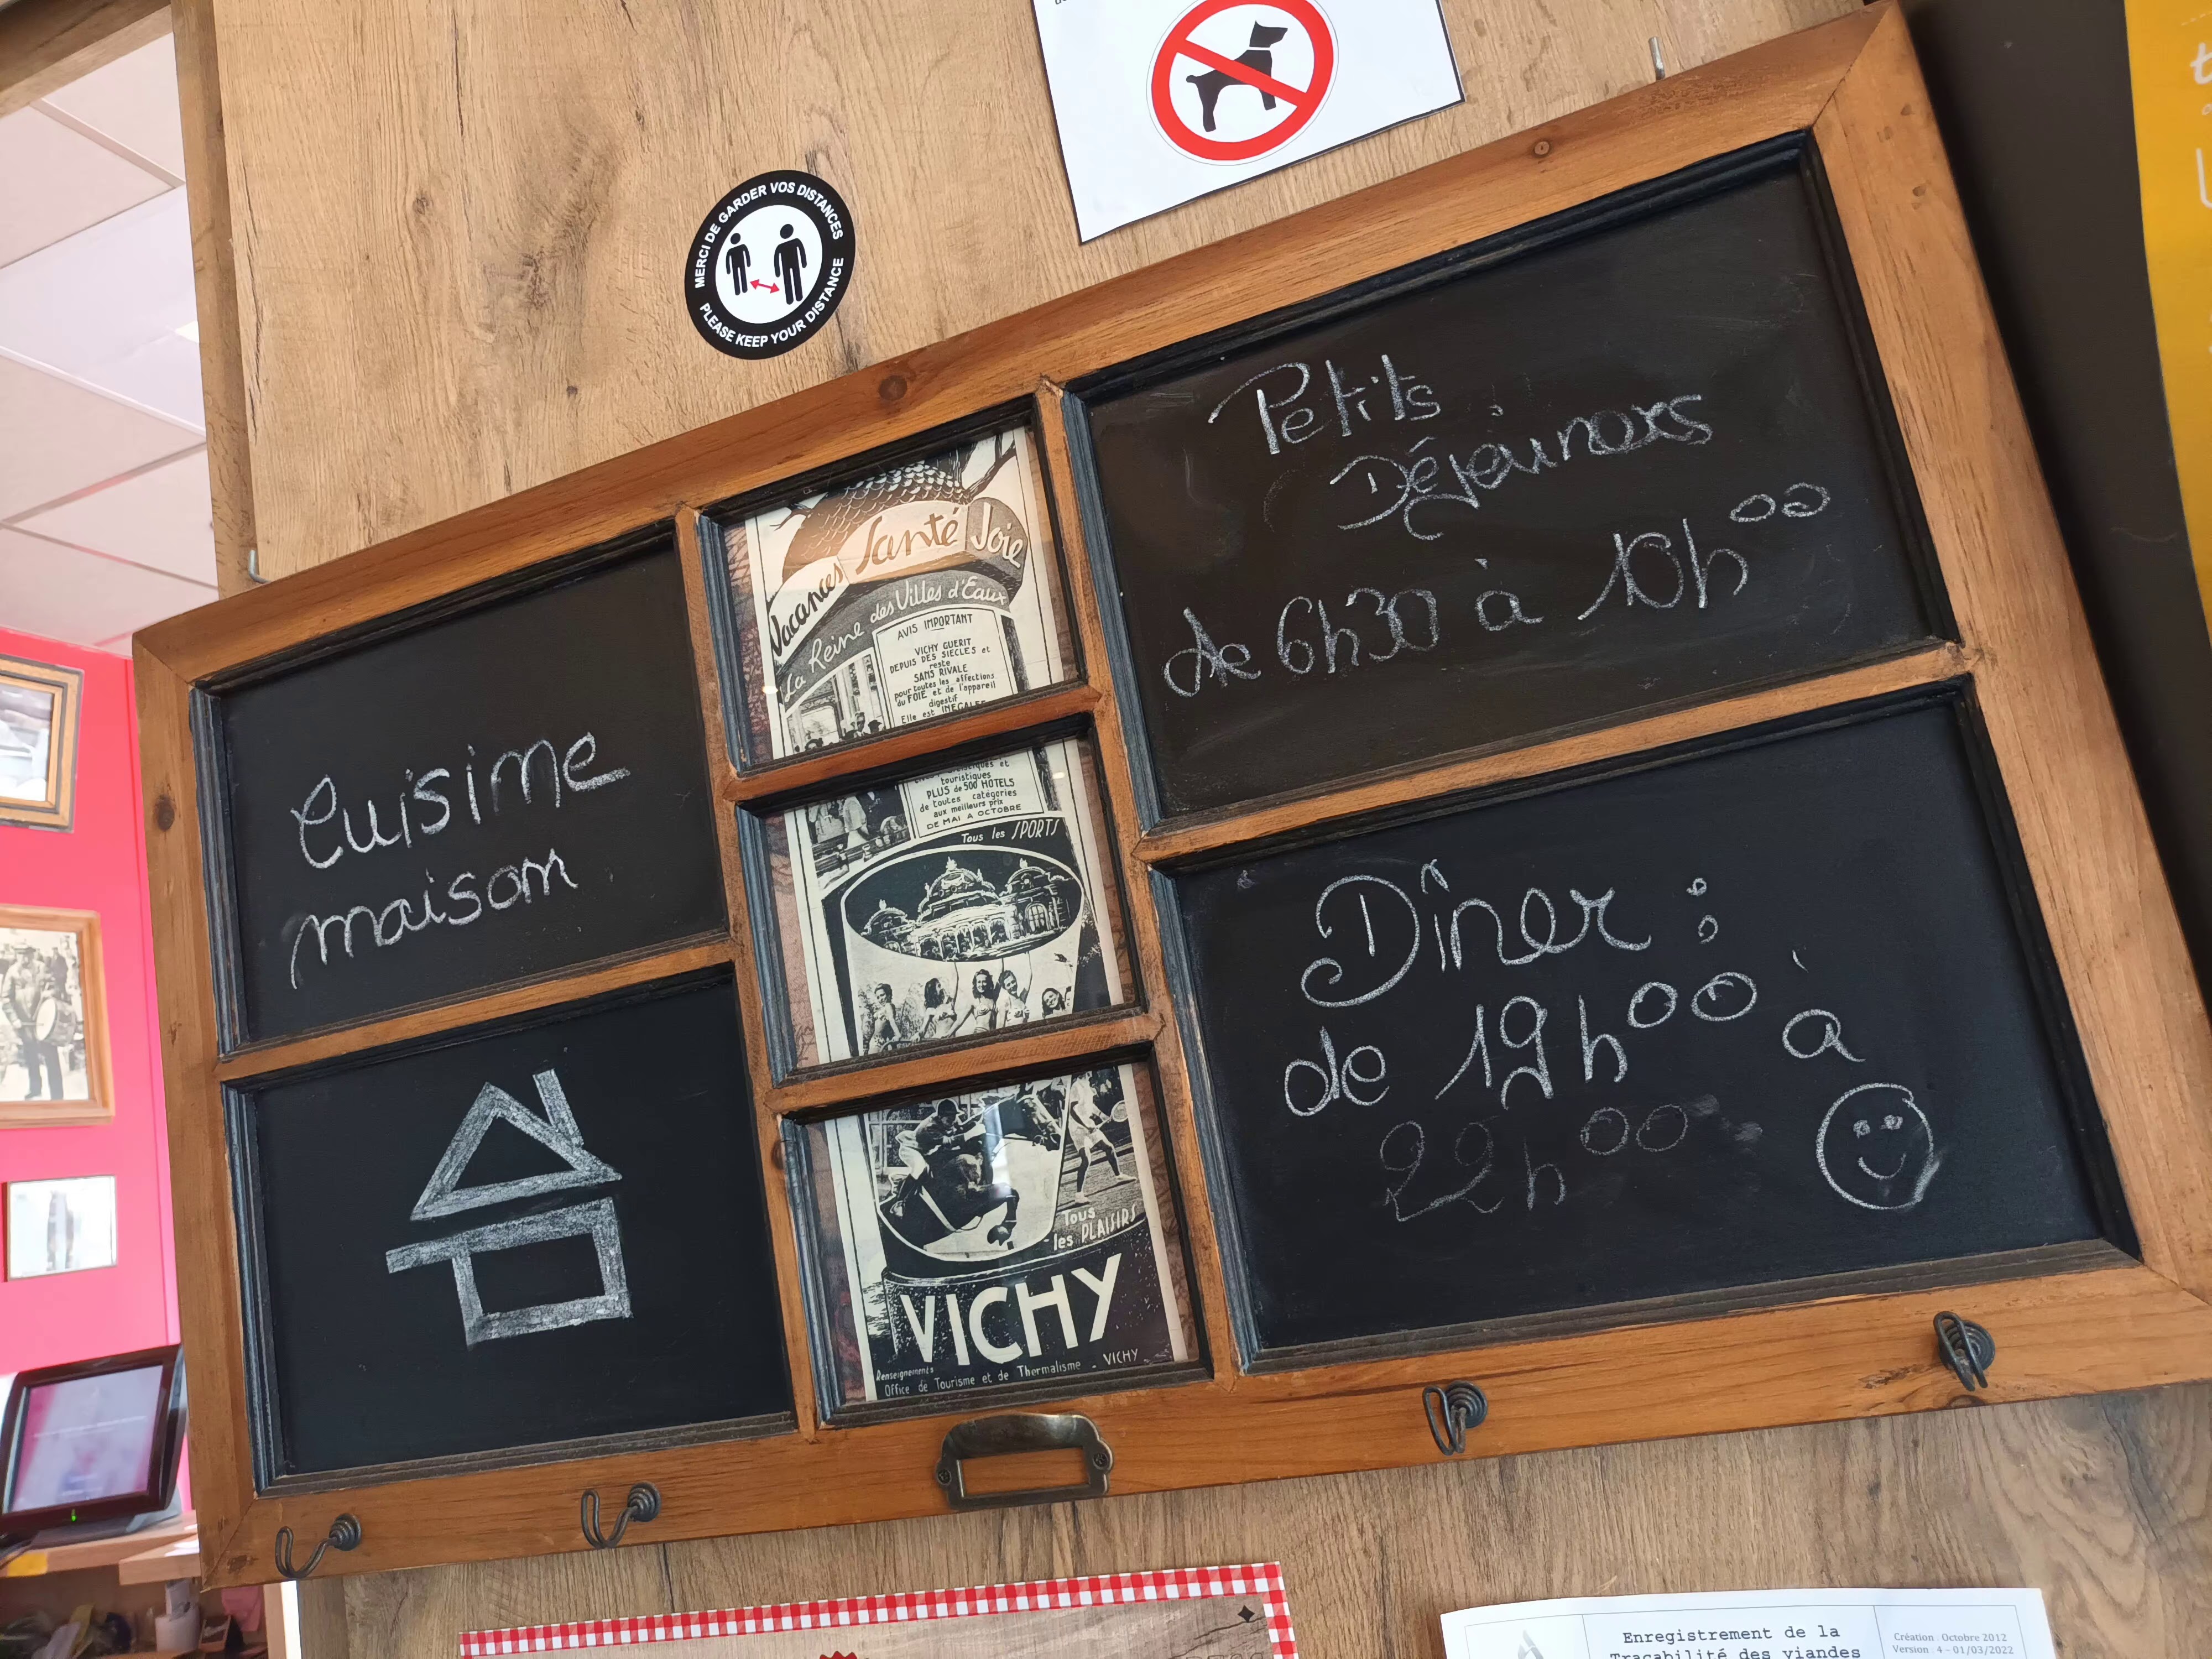 MERCI DE GARDER VOS DISTANCES
PLEASE KEEP YOUR DISTANCE
Cuisine
maison
Vacances Santé Joie
La Reine des Villes d'Eaux
AVIS IMPORTANT
VICHY GUERIT
DEPUIS DES SIECLES et
reste
SANS RIVALE
pour toutes les affections
du FOIE et de l'appareil
digestif
Elle est INEGALEE
touristiques
PLUS de 500 HOTELS
de toutes catégories
aux meilleurs prix
DE MAI A OCTOBRE
Tous les SPORTS
Tous
les PLAISIRS
VICHY
Renseignements
Office de Tourisme et de Thermalisme - VICHY
Petits
Déjeuners
de 6h30 à 10h00
Dîner :
de 19h00 à
22h00
Enregistrement de la
Traçabilité des viandes
Création : Octobre 2012
Version : 4 - 01/03/2022